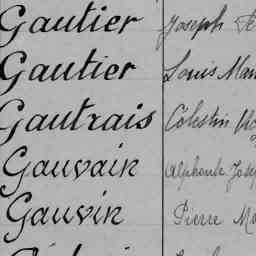 Gautier Joseph
Gautier Louis
Gautrais Célestin
Gauvain Alphonse
Gauvin Pierre